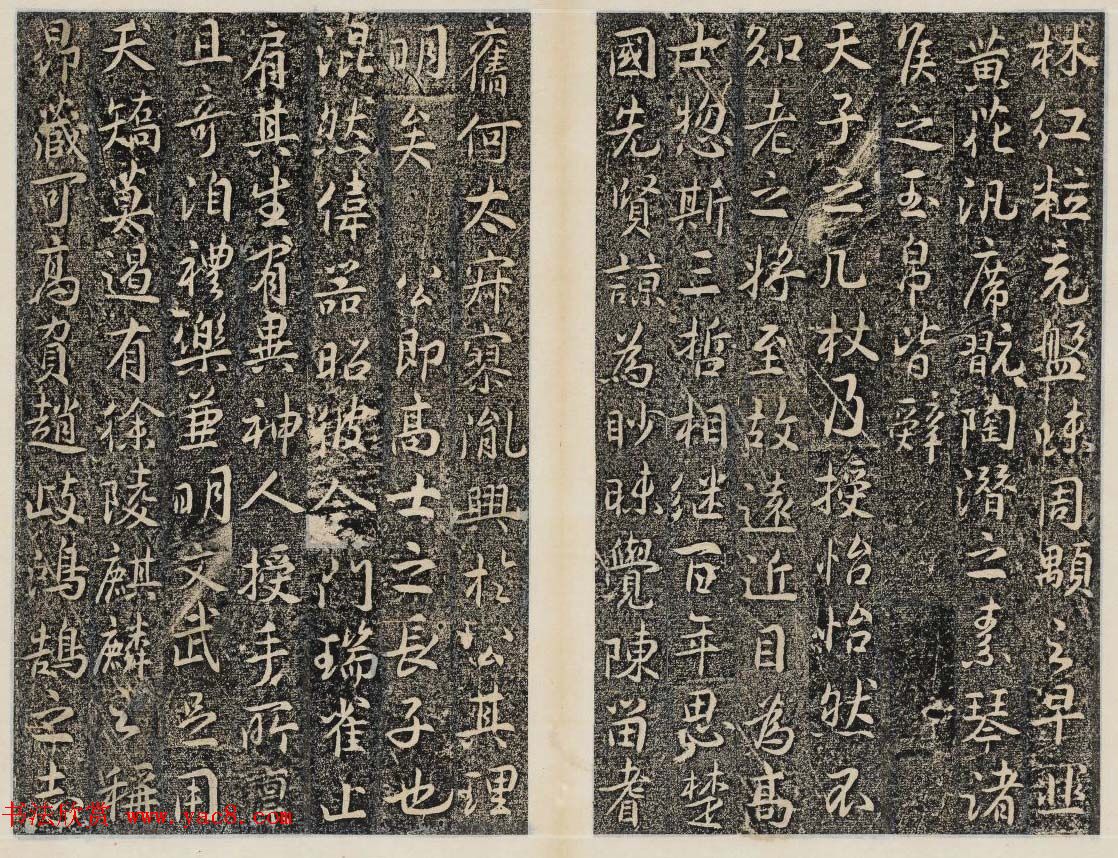 林紅粒充盤味周顒之早韭
黄花汎席翫陶潛之素琴諸
侯之玉帛皆辭
天子之几杖乃授怡怡然不
知老之將至故遠近目為高
士惣斯三哲相繼百年思楚
國先賢諒為眇昧覺陳留耆
舊何太寂寥胤興於公其理
明矣 公即高士之長子也
混然偉器昭彼令門瑞雀止
肩其生有異神人授手所稟
且奇洎禮樂兼明文武足用
夭矯莫遏有徐陵麒麟之稱
昂藏可高負趙歧鴻鵠之志
书法欣赏 www.yac8.com